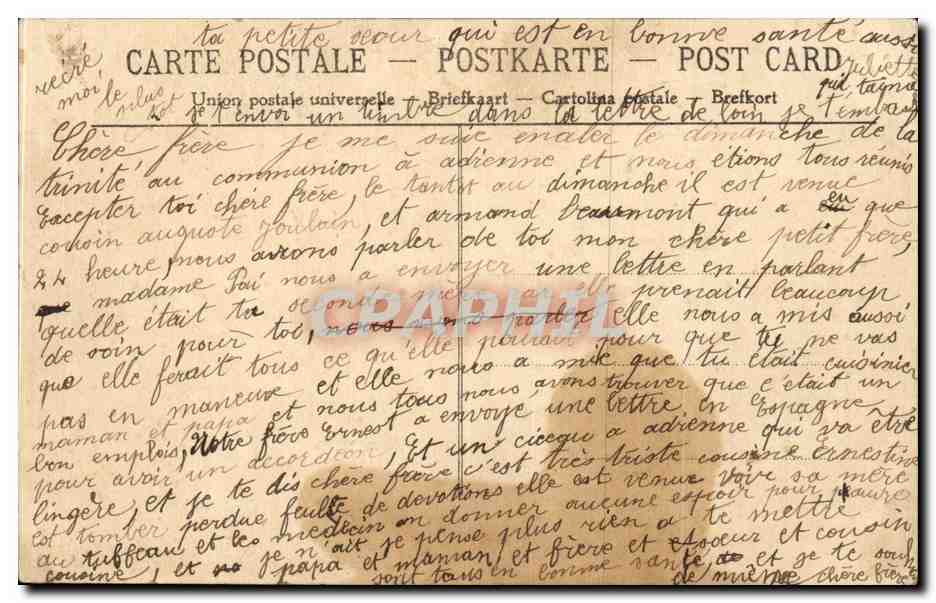 ta petite sœur qui est en bonne santé aussi
écré moi le plus tot
Juliette qui
CARTE POSTALE — POSTKARTE — POST CARD
Union postale universelle — Briefkaart — Cartolina postale — Brefkort
je t'envoi un timbre dans ta lettre de loin je t'embrasse
Chéré frère je me suie enaler le dimanche de la
trinité, au communion à adrienne et nous étions tous réunis
Excepter toi chéré frère, le tantot au dimanche il est venue
cousin auguste Joulain, et armand Beaumont qui a eu que
24 heure, nous avons parler de toi mon chère petit frère,
madame Pai nous a envoyer une lettre en parlant
quelle était ta seconde mère, a elle prenait beaucoup
de soin pour toi, nous avons parler elle nous a mis aussi
que elle ferait tous ce qu'elle pourait pour que tu ne vas
pas en maneuve et elle nous a mie que tu était cuisinier
maman et papa et nous tous nous avons trouver que c'était un
bon emplois, Notre frère Ernest a envoyé une lettre en Espagne
pour avoir un accordéon, Et un à adrienne qui va être
lingère, et je te dis chère frère c'est très triste cousine Ernestine
est tomber perdue feulle de devotions elle est venue voire sa mère
au tuffeau et les medecin on donner aucune espoir pour pauvre
cousine, et je n'ait, je pense plus rien a te mettre
papa et maman et frère et sœur et cousin
sont tous en bonne santé, et je te
de même chère frère
CPAPHIL